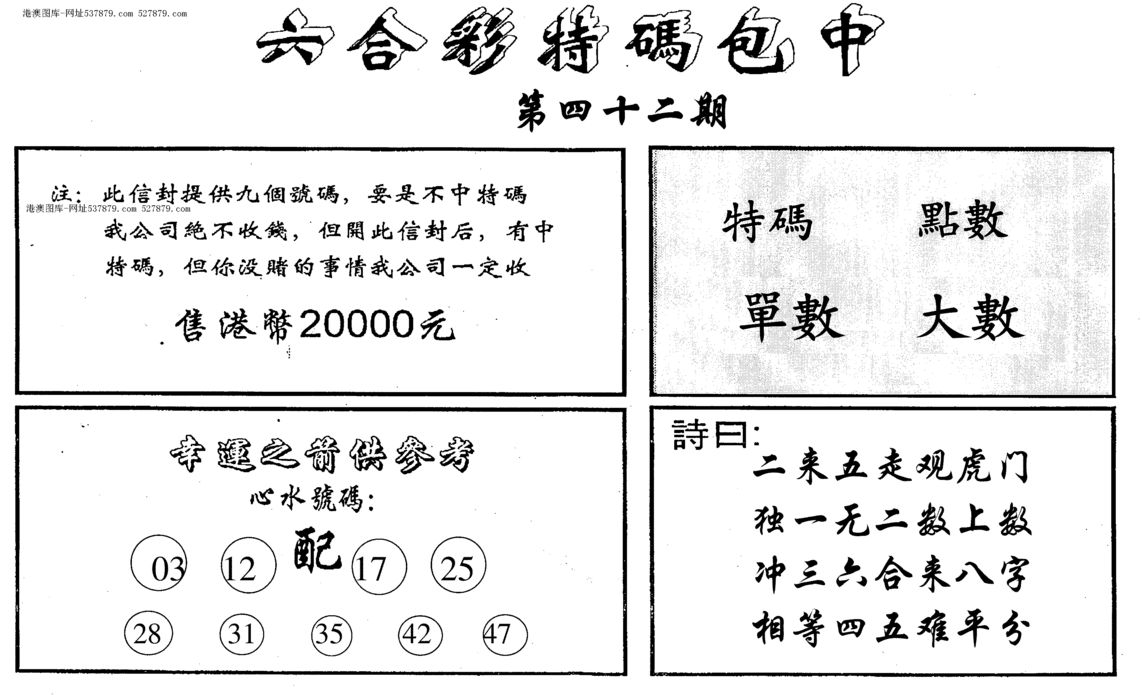 港澳图库-网址537879.com 527879.com
六合彩特碼包中
第四十二期
注：此信封提供九個號碼，要是不中特碼
港澳图库-网址537879.com 527879.com
我公司絶不收錢，但開此信封后，有中
特碼，但你没賭的事情我公司一定收
售港幣20000元
特碼 點數
單數 大數
幸運之箭供參考
心水號碼：
03 12 配 17 25
28 31 35 42 47
詩曰：
二来五走观虎门
独一无二数上数
冲三六合来八字
相等四五难平分